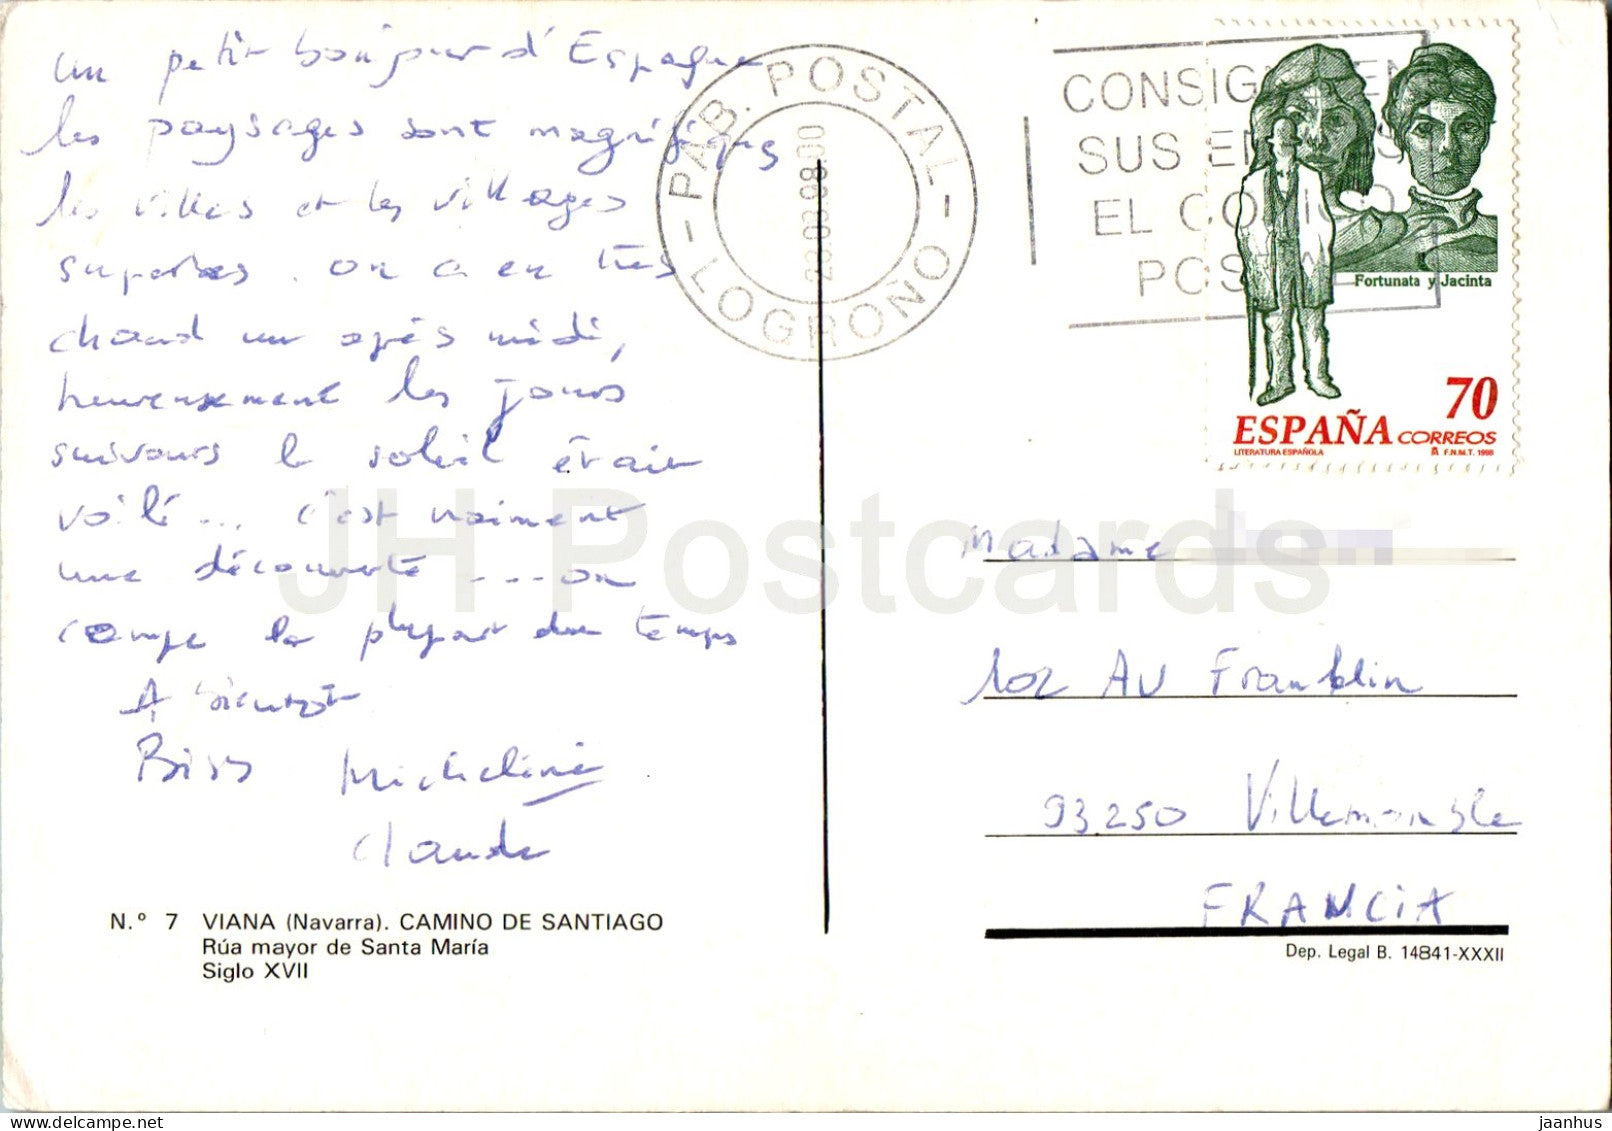 un petit bonjour d'Espagne
les paysages sont magnifiques
les villes et les villages
superbes. on a eu très
chaud un après midi,
heureusement les jours
suivants le soleil était
voilé... c'est vraiment
une découverte ... on
campe la plupart du temps
A bientôt
Bises Micheline
Claude
N.º 7 VIANA (Navarra). CAMINO DE SANTIAGO
Rúa mayor de Santa María
Siglo XVII
PAB. POSTAL
- LOGROÑO -
CONSIGNEN
SUS E
EL CODIGO
POSTAL
Fortunata y Jacinta
70
ESPAÑA CORREOS
LITERATURA ESPAÑOLA F.N.M.T. 1998
Madame
102 AV Franklin
93250 Villemomble
FRANCIA
Dep. Legal B. 14841-XXXII
JH Postcards
jaanhus